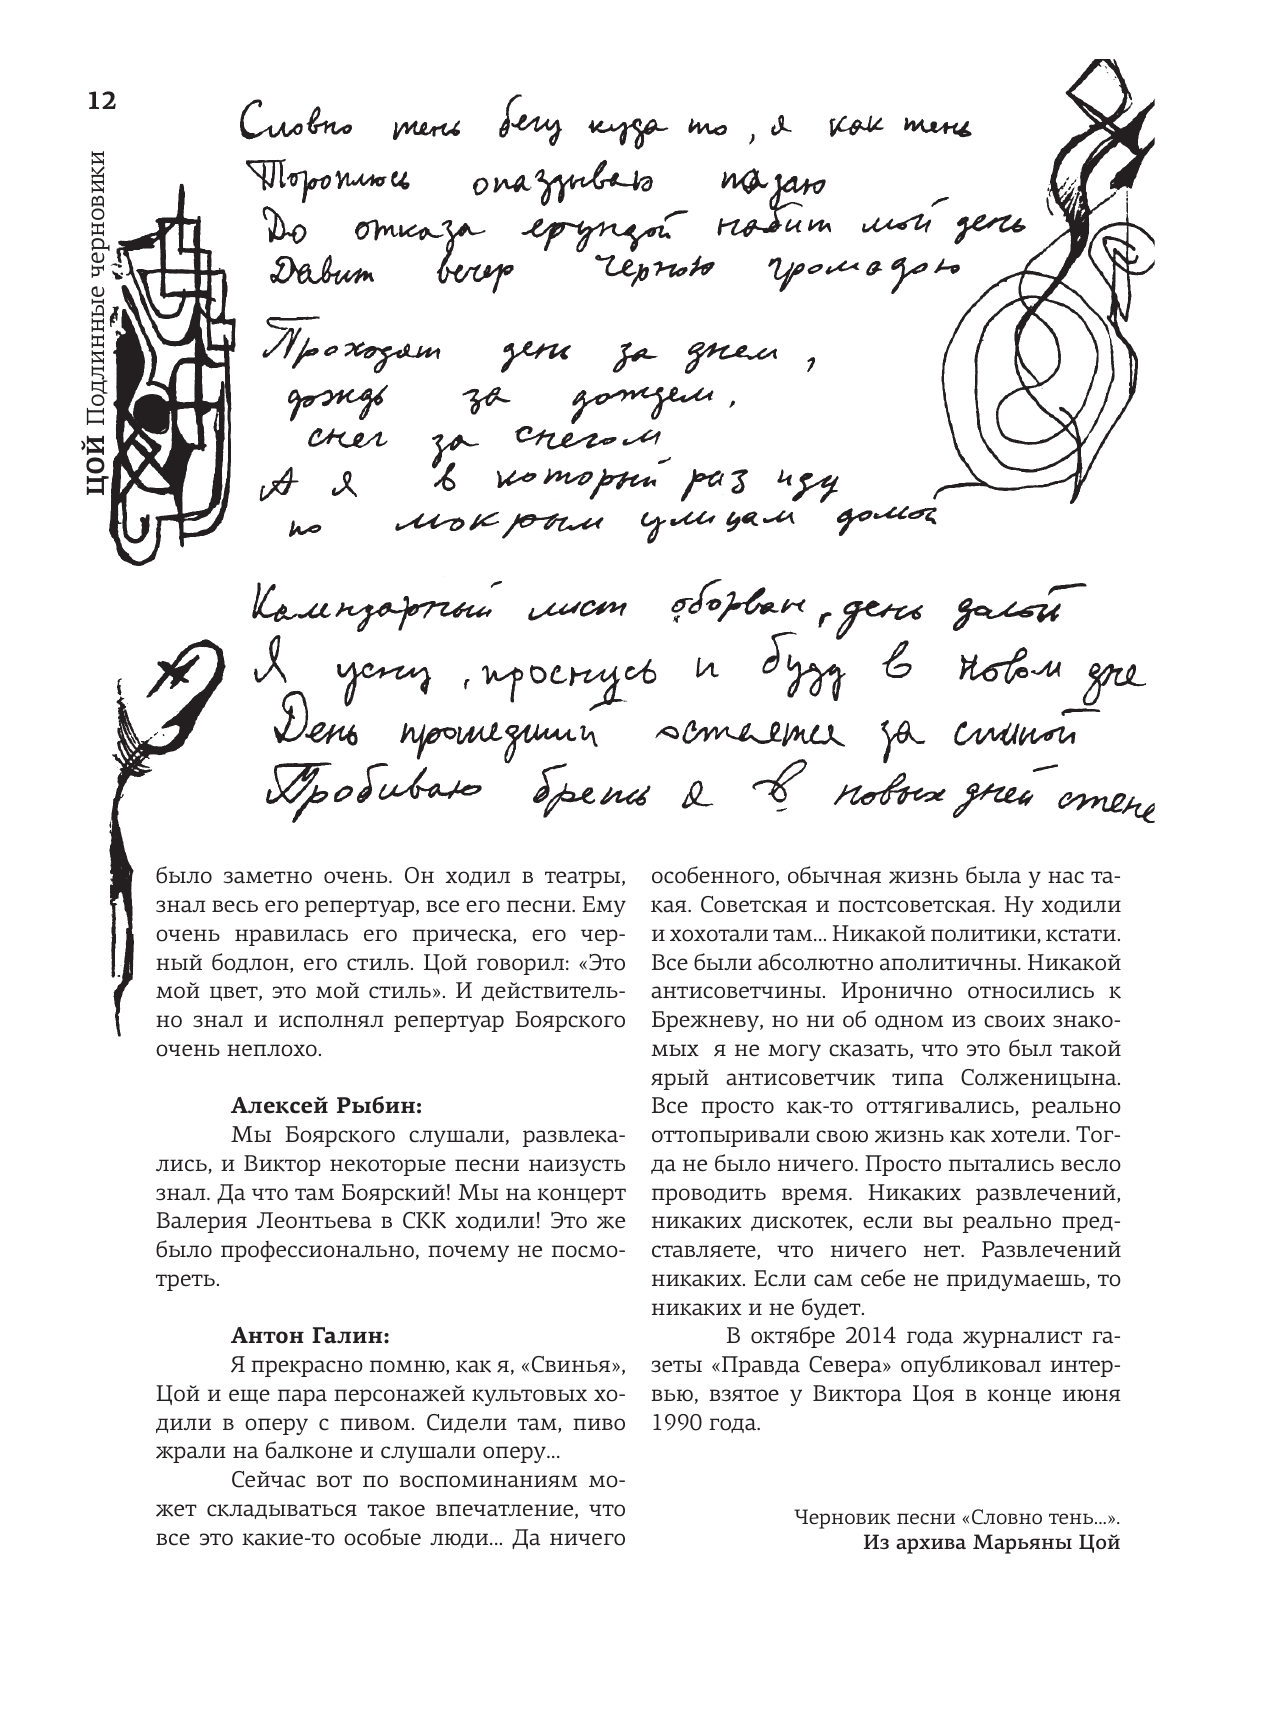 12
ЦОЙ Подлинные черновики
Словно тень бегу куда то, я как тень
Тороплюсь опаздываю падаю
До отказа ерундой набит мой день
Давит вечер черною громадою
Проходят день за днем,
дождь за дождем,
снег за снегом
А я в который раз иду
по мокрым улицам домой
Календарный лист оборван, день долой
Я усну, проснусь и буду в новом дне
День прошедший остается за спиной
Пробиваю брешь я в новых дней стене
было заметно очень. Он ходил в театры,
знал весь его репертуар, все его песни. Ему
очень нравилась его прическа, его чер-
ный бодлон, его стиль. Цой говорил: «Это
мой цвет, это мой стиль». И действитель-
но знал и исполнял репертуар Боярского
очень неплохо.
Алексей Рыбин:
Мы Боярского слушали, развлека-
лись, и Виктор некоторые песни наизусть
знал. Да что там Боярский! Мы на концерт
Валерия Леонтьева в СКК ходили! Это же
было профессионально, почему не посмо-
треть.
Антон Галин:
Я прекрасно помню, как я, «Свинья»,
Цой и еще пара персонажей культовых хо-
дили в оперу с пивом. Сидели там, пиво
жрали на балконе и слушали оперу...
Сейчас вот по воспоминаниям мо-
жет складываться такое впечатление, что
все это какие-то особые люди... Да ничего
особенного, обычная жизнь была у нас та-
кая. Советская и постсоветская. Ну ходили
и хохотали там... Никакой политики, кстати.
Все были абсолютно аполитичны. Никакой
антисоветчины. Иронично относились к
Брежневу, но ни об одном из своих знако-
мых я не могу сказать, что это был такой
ярый антисоветчик типа Солженицына.
Все просто как-то оттягивались, реально
оттопыривали свою жизнь как хотели. Тог-
да не было ничего. Просто пытались весло
проводить время. Никаких развлечений,
никаких дискотек, если вы реально пред-
ставляете, что ничего нет. Развлечений
никаких. Если сам себе не придумаешь, то
никаких и не будет.
В октябре 2014 года журналист га-
зеты «Правда Севера» опубликовал интер-
вью, взятое у Виктора Цоя в конце июня
1990 года.
Черновик песни «Словно тень...».
Из архива Марьяны Цой